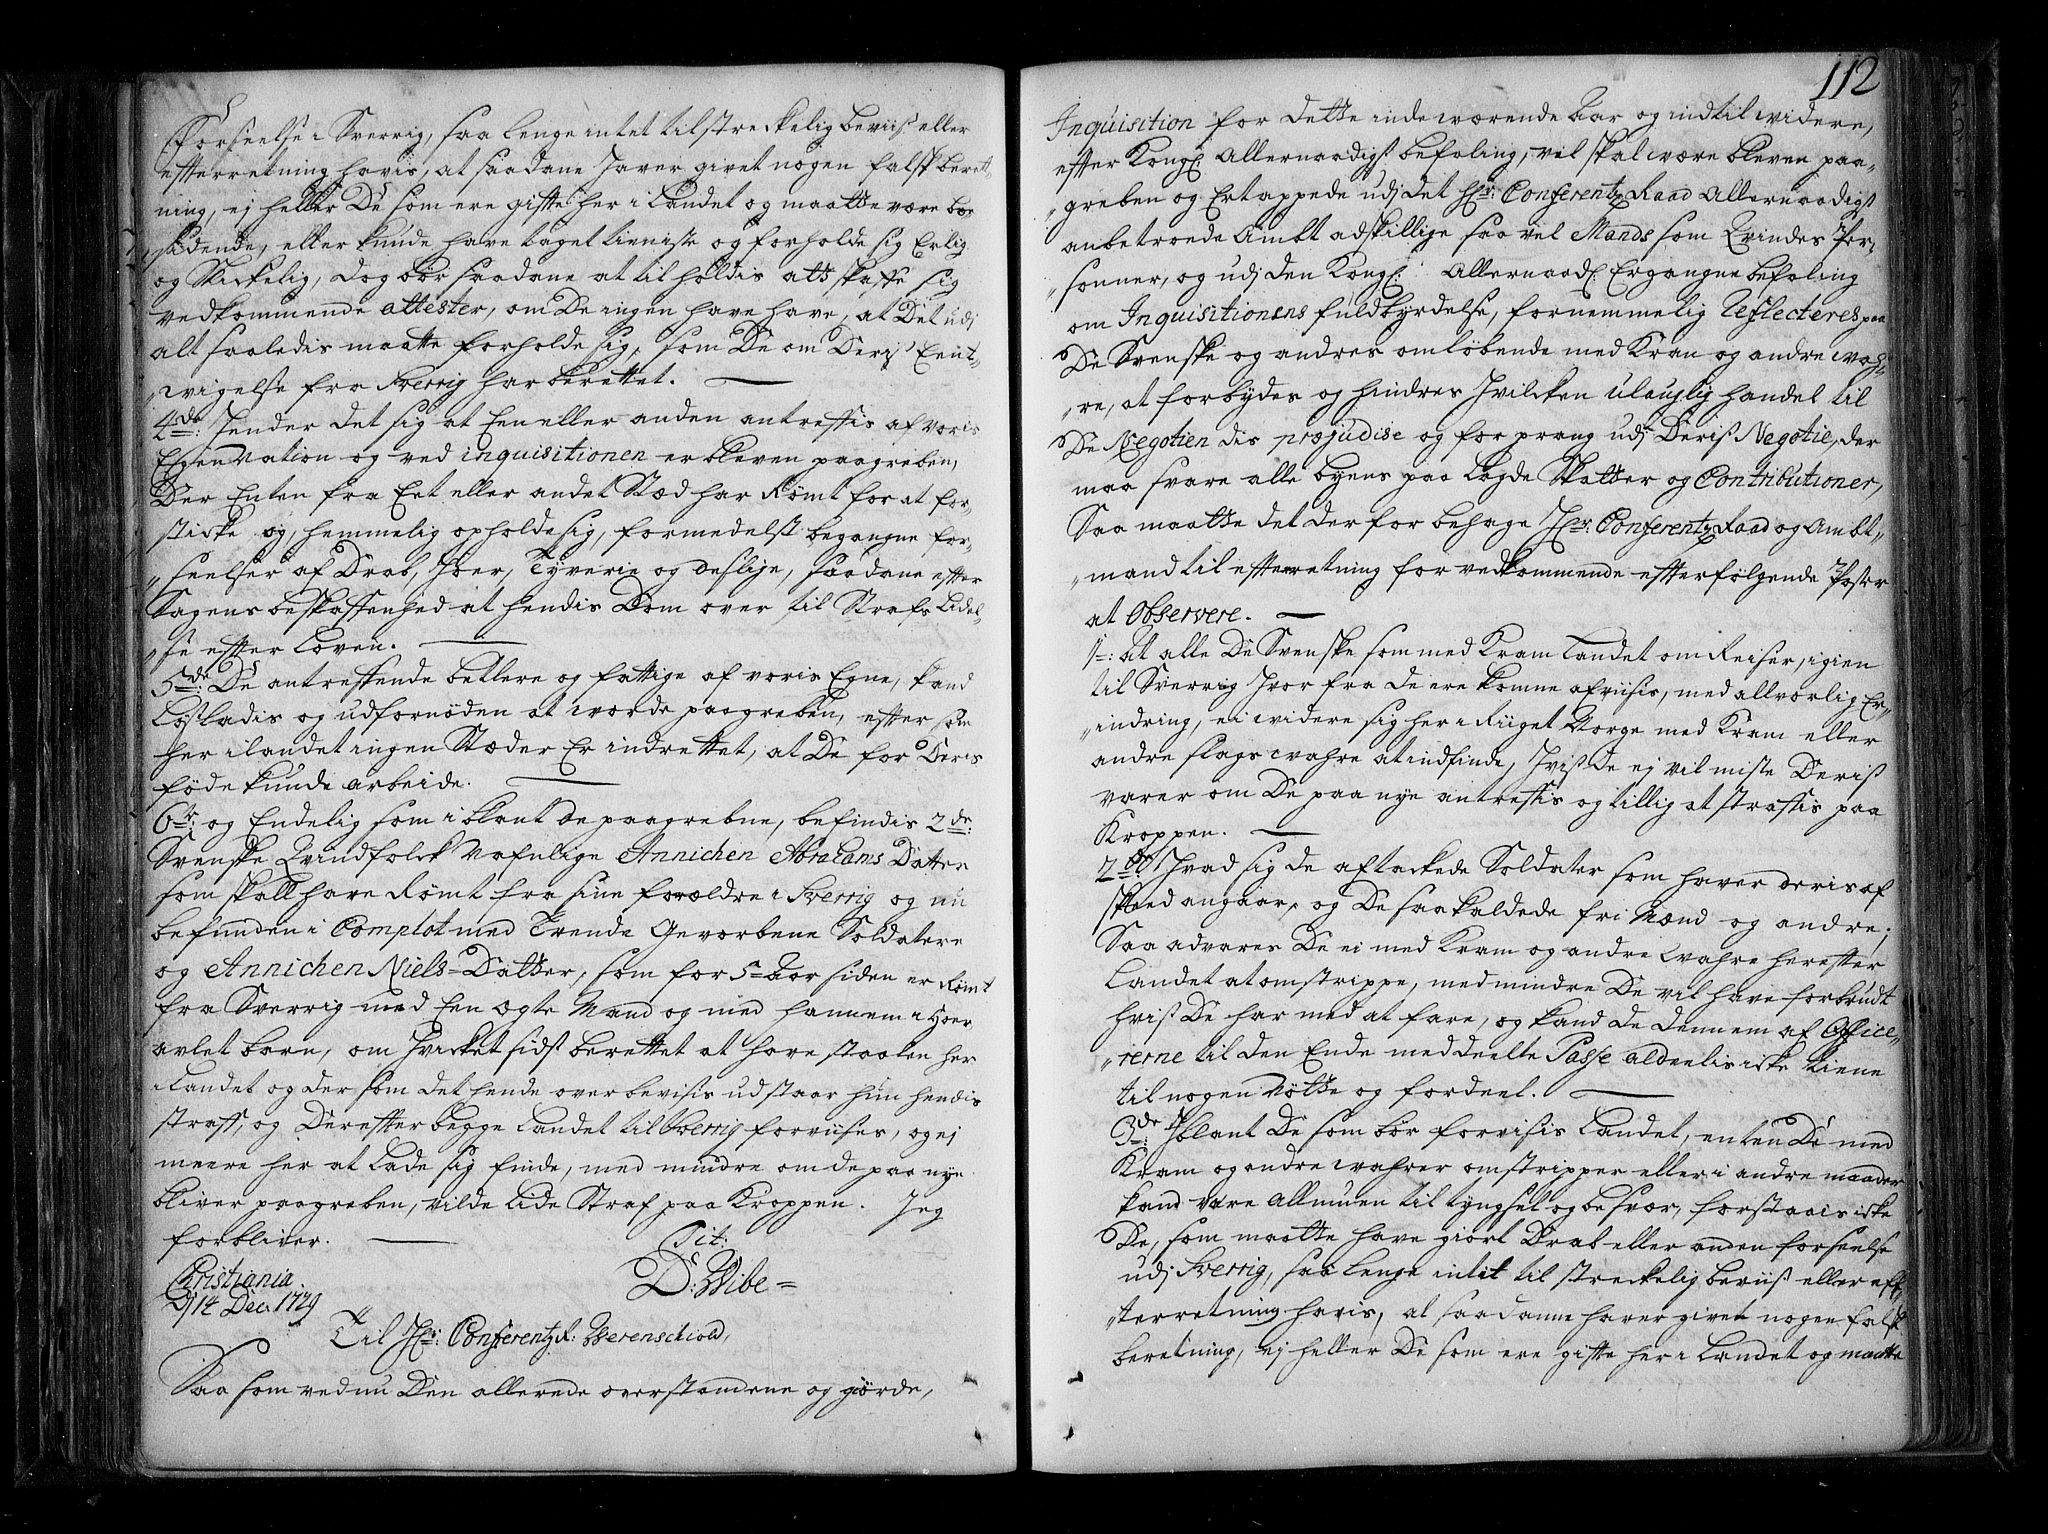 Forseelse i Sverrig, saa lenge intet tilstreckelig beviis eller
efterretning havis, at saadane haver givet nogen falsk beret-
ning, ej heller De som ere gifte her i Landet og maatte være boe
siidende, eller kunde have taget tieniste og forholde sig Erlig
og Skickelig, dog bør saadane at tilholdis att skaffe sig
vedkommende attester, om De ingen have have, at Det udj
alt saaledis maatte forholde sig, som De om Deris Eent-
vigelse fra Sverrig har berettet.
4de: Hender det sig at Een eller anden antreffis af voris
Egen Nation og ved inquisitionen er bleven paagreben,
Der Enten fra Eet eller andet Stæd har Rømt for at for-
sticke og hemmelig opholde sig, formedelst begangne for-
seelser af Drab, Hoer, Tyverie og deslige, saadane efter
Sagens beskaffenhed at hendis Dom over, til Strafs Lidel-
se efter Loven.
5de: De antreffende betlere og fattige af voris Egne, kand
Løsladis og udfornøden at worde paagreben, efter som
her i landet ingen Stæder Er indrettet, at De for Deris
føde kunde arbeide.
6te: og Endelig som i blant de paagrebne, befindis 2de:
Svenske Qvindfolck Nafnlige Annichen Abrahams Datter
som skall have Rømt fra sine forældre i Sverrig og nu
befunden i Complot med Trende Gevorbene Soldatere
og Annichen Niels-Datter, som for 5 Aar siden er Rømt
fra Sverrig med Een ægte Mand og med hannem i Hoer
avlet børn, om hvilcket sidst berettet at have staaten her
i Landet og der som det hende overbevisis udstaar hun hendis
straff, og Derefter begge Landet til Sverrig forviises, og ej
meere her at lade sig finde, med mindre om de paa nye
bliver paagreben, vilde lide Straf paa Kroppen. Jeg
forbliver.
Tit:
Christiania D: Wibe =
d 14 Decr 1729
Til Hr: Conferentz R: Werenschiold,
Saa som ved nu Den allerede overstandene og giørde,
112
Inquisition for dette indeværende Aar og indtil widere,
efter Kongl Allernaadigst befaling, vil skal være bleven paa-
greben og Ertappede udj det Hr: Conferentz Raad Allernaadigst
anbetroede Ambt adskillige saa vel Mands som Qvindes Per-
sonner, og udj den Kongl: Allernaad: Ergangne befaling
om Inquisitionens fuldbyrdelse, fornemmelig Reflecteres paa
De Svenske og andres omløbende med Kram og andre wah-
re, at forbydes og hindres hvilcken ulauglig handel til
De Negotierendis præjudise og forprang udj Deris Negotie, der
maa svare alle byens paa lagde Skatter og Contributioner,
Saa maatte det derfor behage Hr: Conferentz Raad og Ambt-
mand til efterretning for vedkommende efterfølgende Poster
at Observere.
1: At alle De Svenske som med Kram Landet om Reiser, igien
til Sverrig hvor fra de ere komne afviisis, med allvorlig Er-
indring, ei widere sig her i Riiget Norge med Kram eller
andre slags wahre at indfinde, hvis De ej vil miste Deris
varer om De paa nye antreffis og tillig at straffis paa
Kroppen.
2do Hvad sig de aftackede Soldater som haver deris af
skeed angaar, og De saa kaldede fri Mænd og andre;
Saa advares De ei med Kram og andre wahre herefter
Landet at omstrippe, med mindre De vil have forbrudt
hvis De har med at fare, og kand de dennem af Office-
rerne til den Ende meddeelte Passe aldeelis icke tiene
til nogen Nøtte og fordeel.
3de Iblant De som bør forvisis Landet, enten De med
Kram og andre wahrer omstripper eller i andre maader
kand være Allmuen til tyngsel og besvær, forstaais icke
De, som maatte have giort Drab eller anden forseelse
udj Sverrig, saa lenge intet til streckelig beviis eller eff-
terretning havis, at saadanne haver givet nogen falsk
beretning, ej heller De som ere gifte her i Landet og maatte